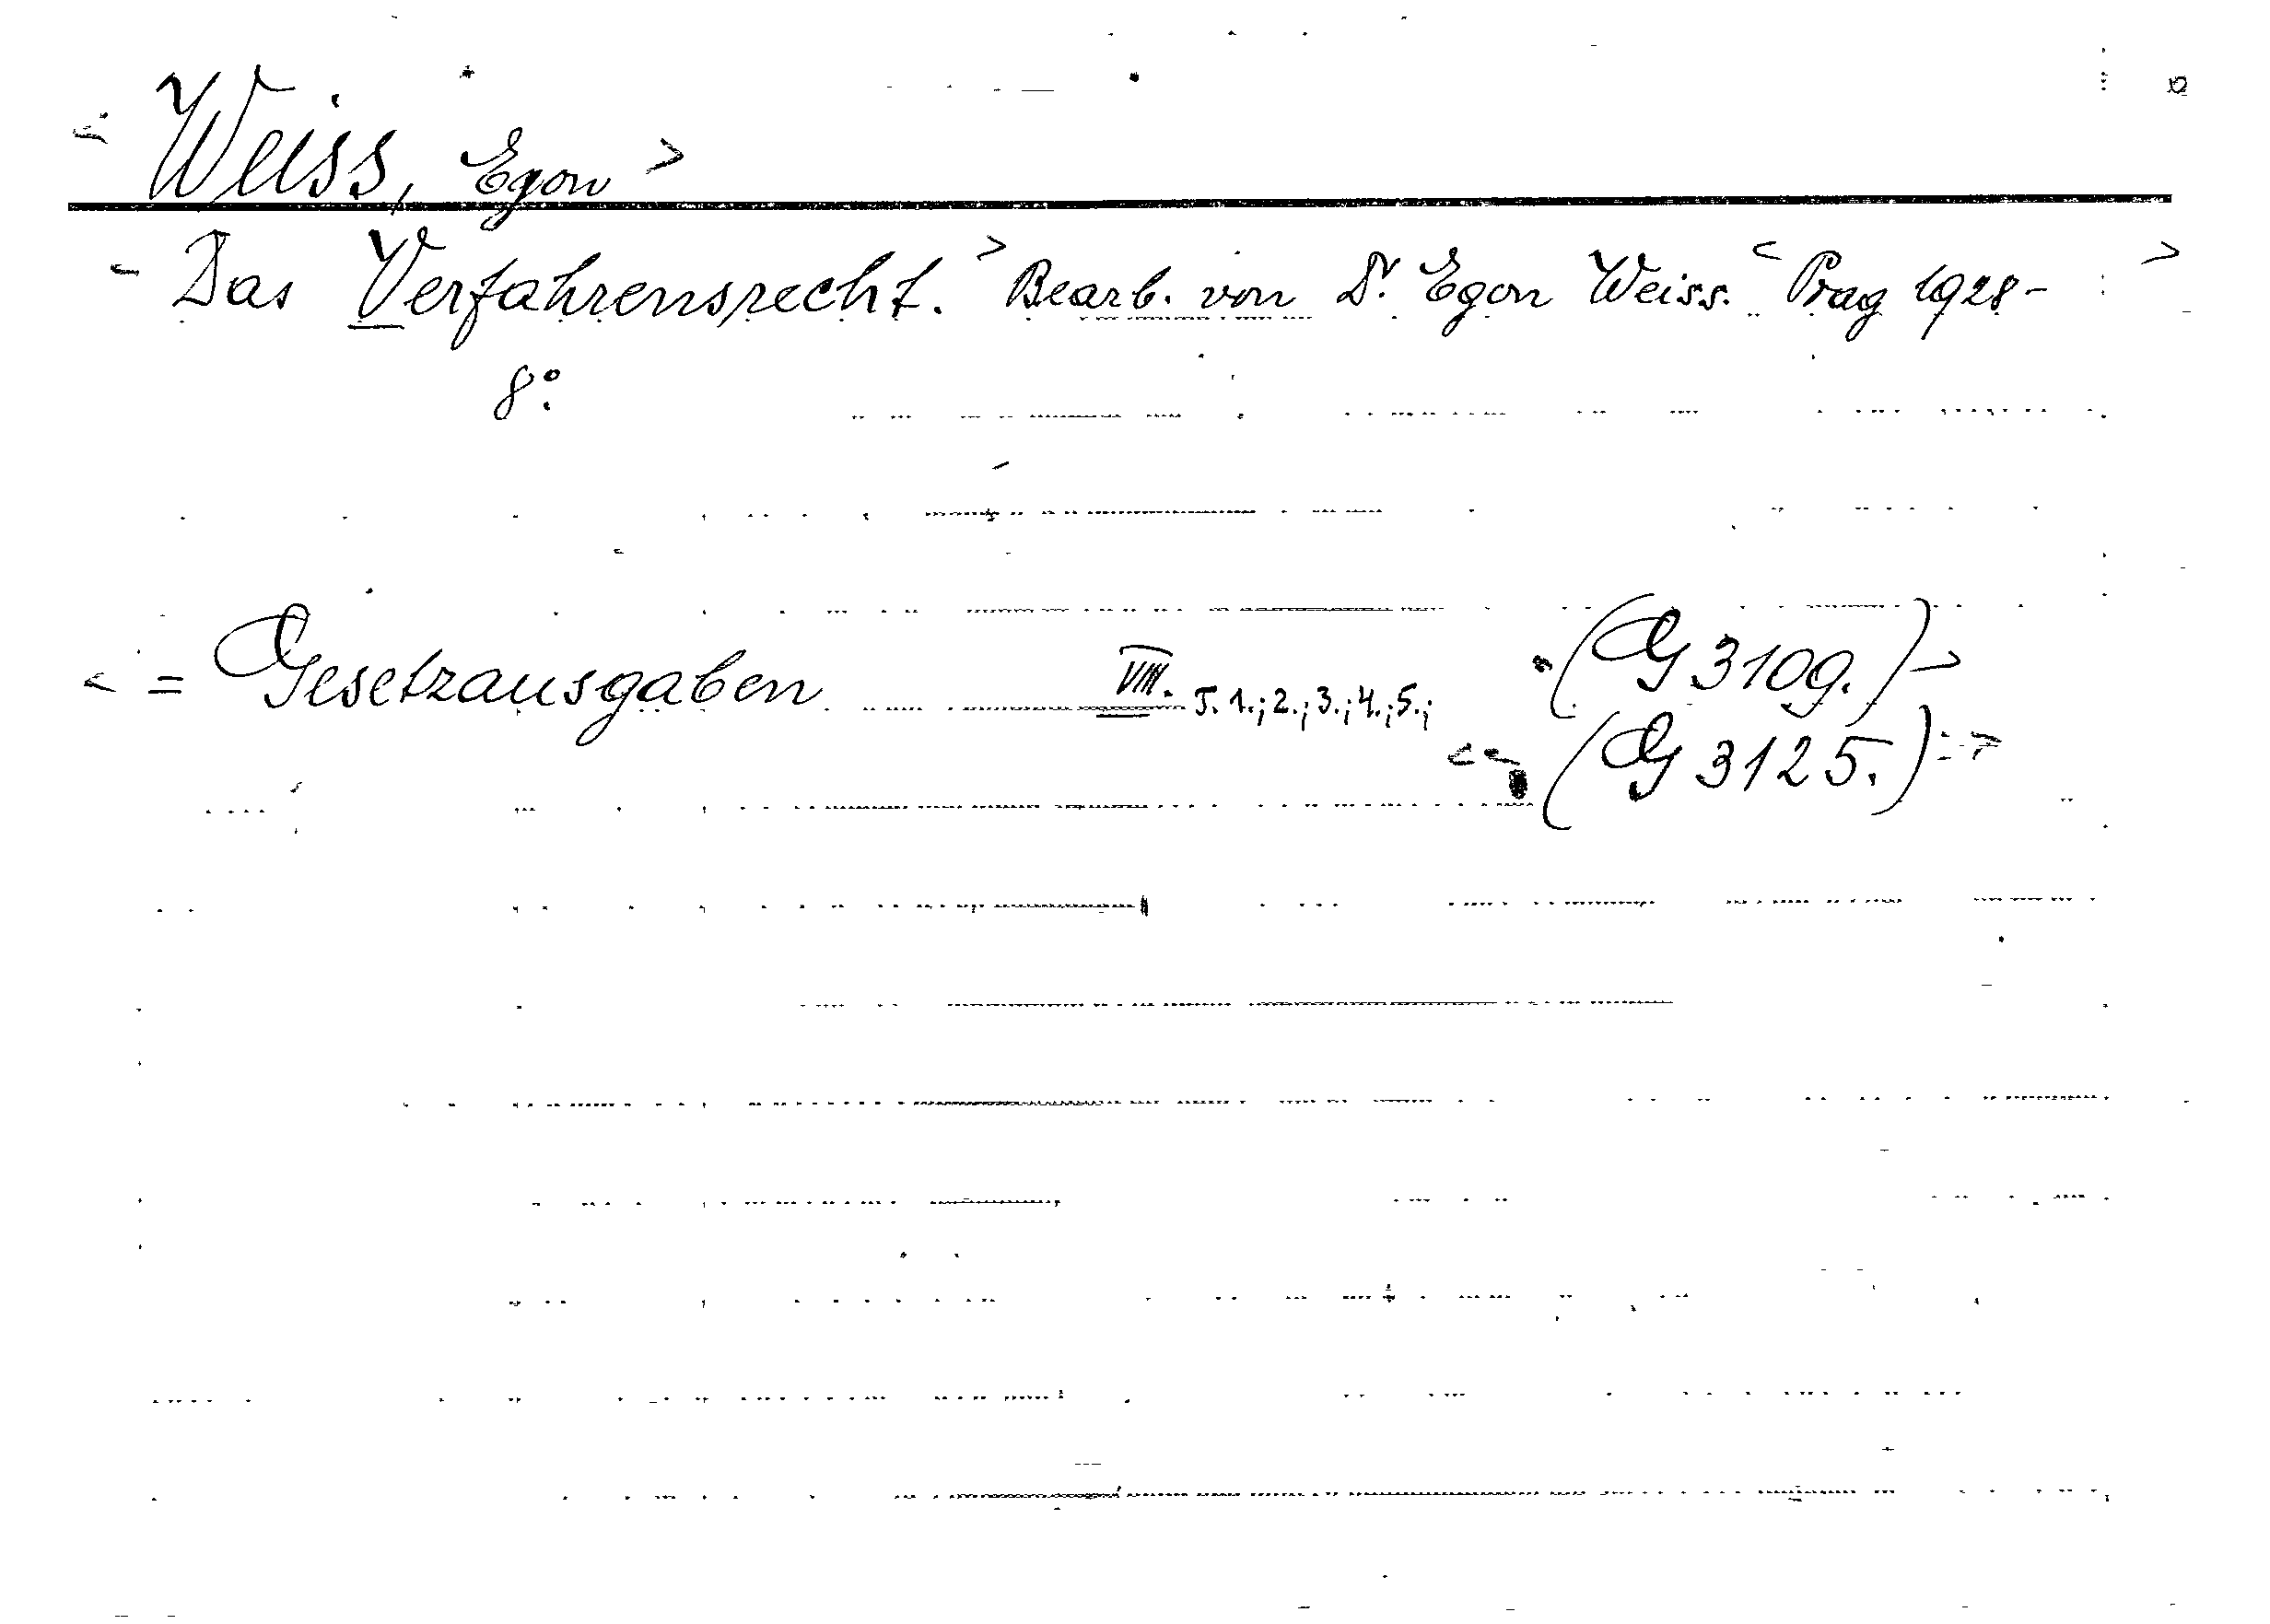 < Weiss, Egon >
- Das Verfahrensrecht. > Bearb. von Dr. Egon Weiss. < Prag 1928- >
8°.
< = Gesetzausgaben VIII. T. 1.; 2.; 3.; 4.; 5.; (G 3109.) >
< (G 3125.) >